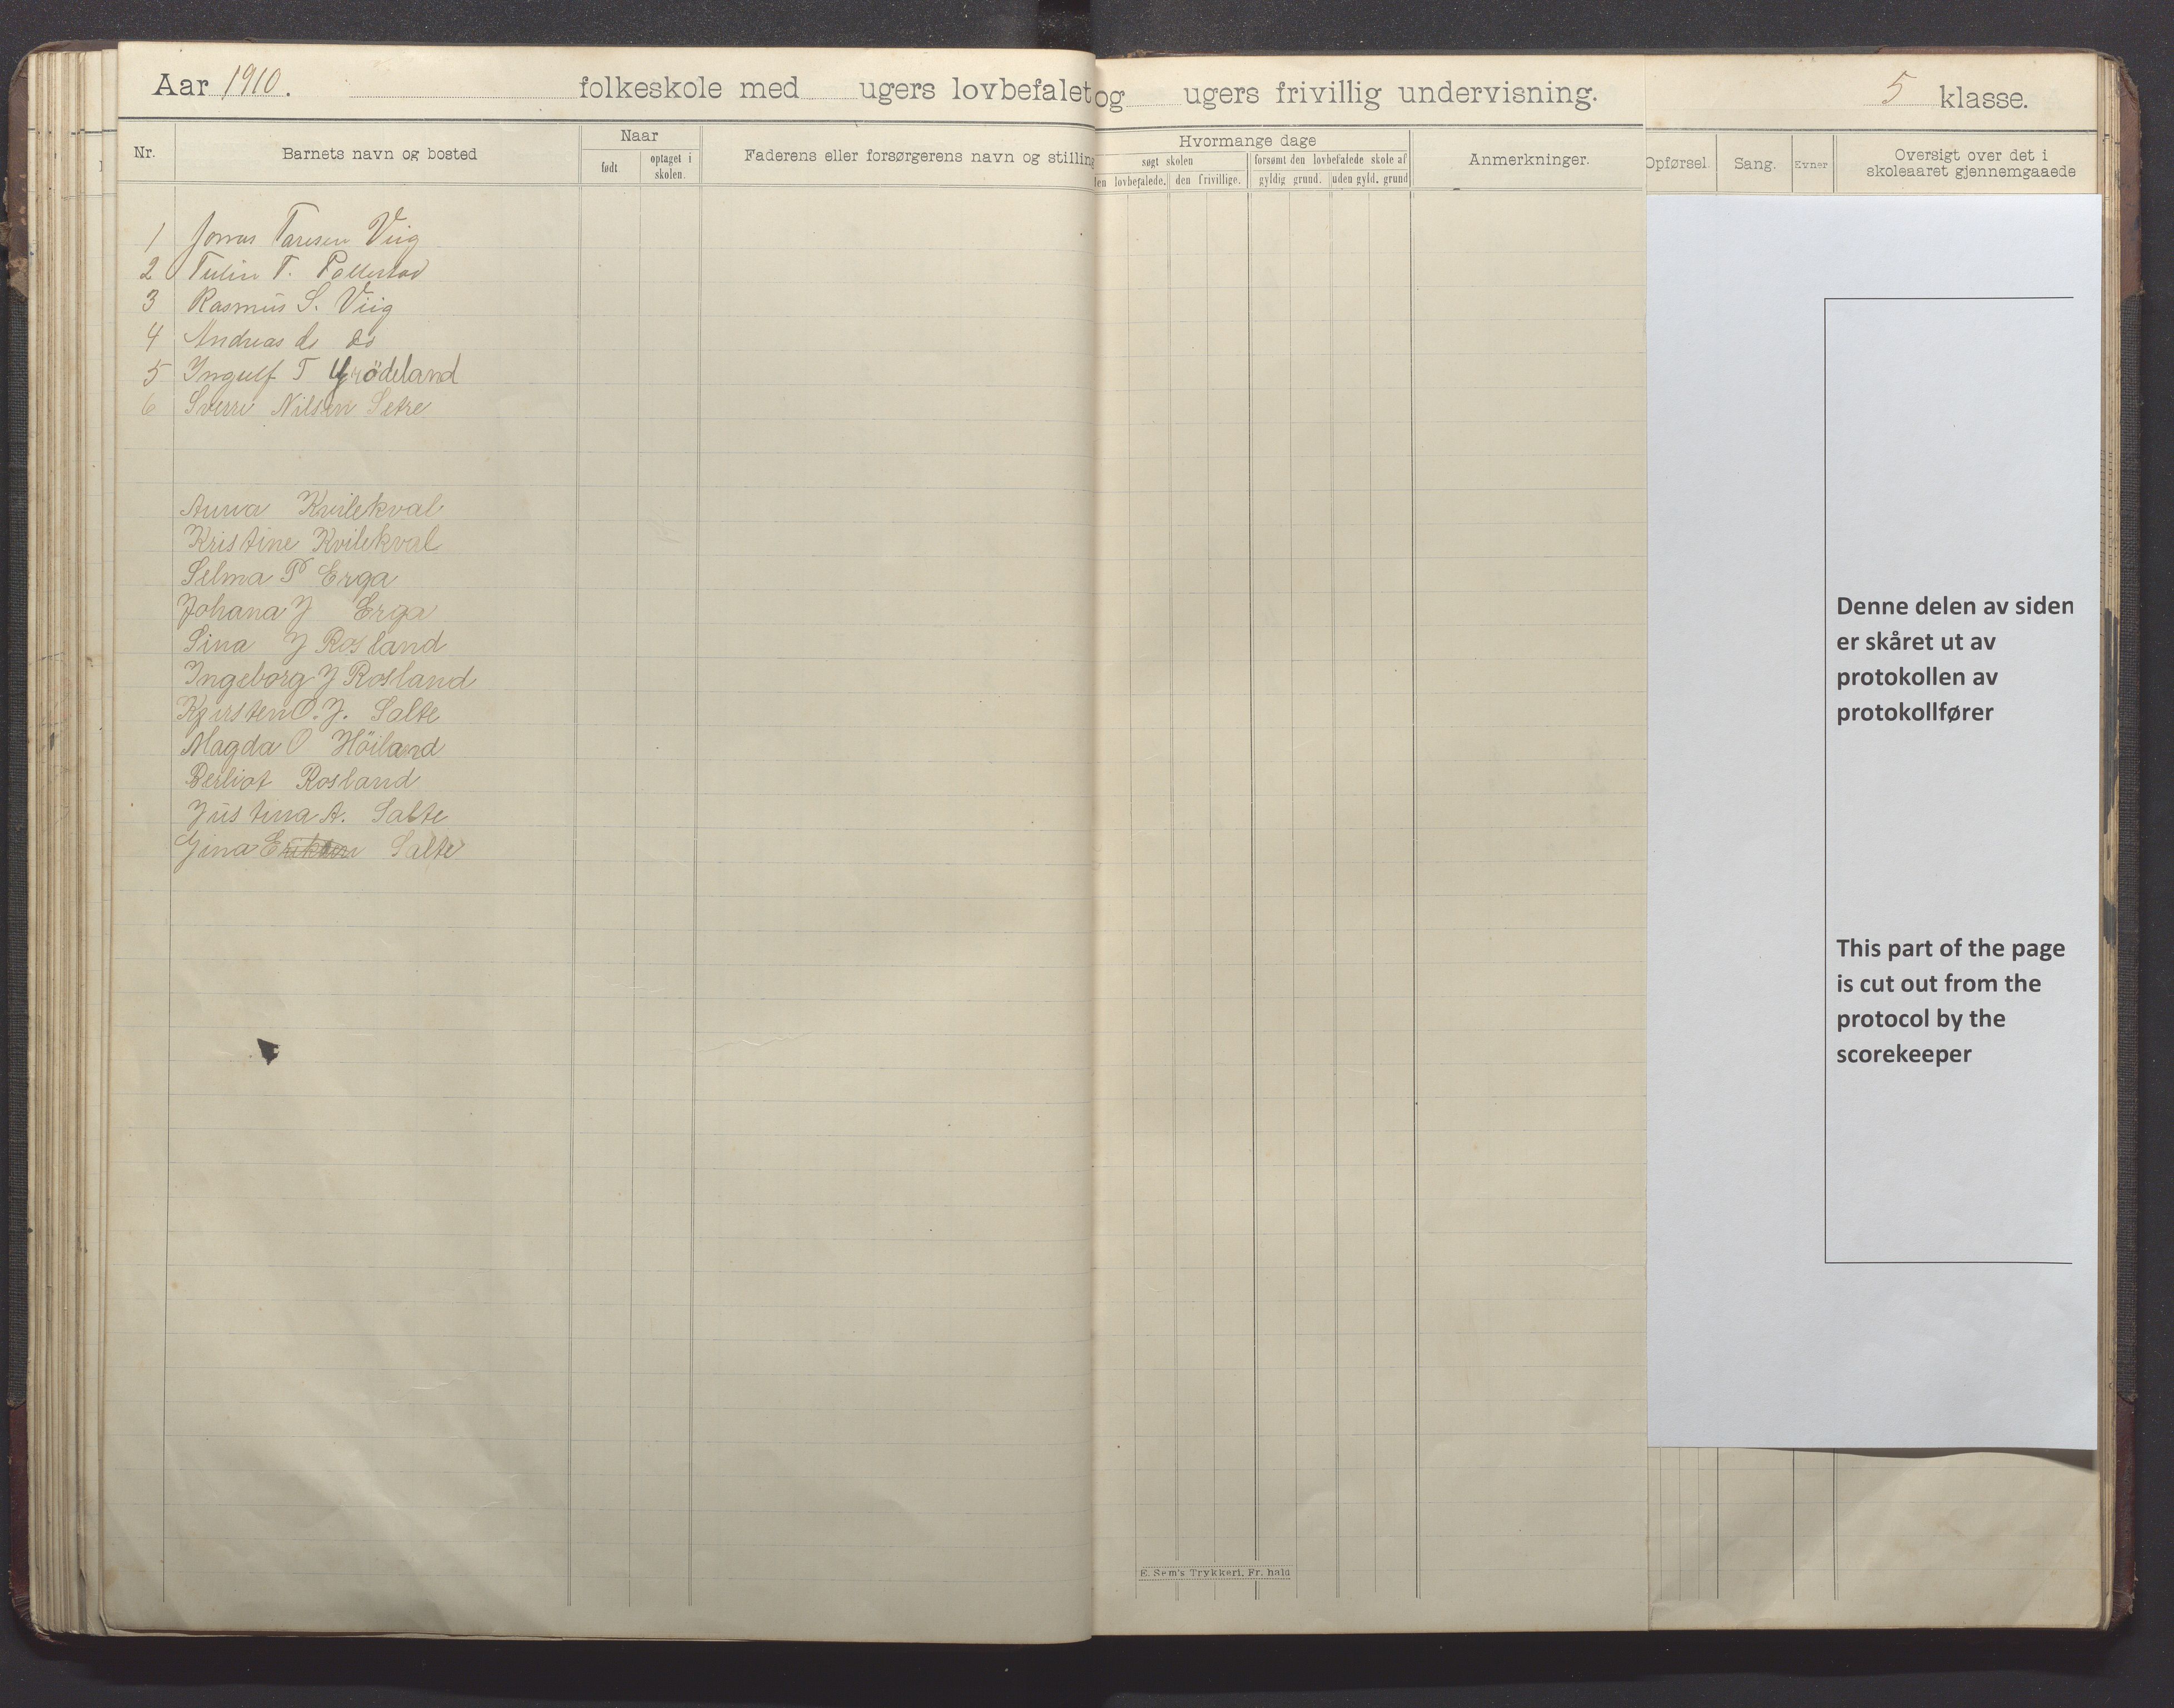 Aar 1910. folkeskole med ugers lovbefalet og ugers frivillig undervisning. 5 klasse.
Nr. Barnets navn og bosted Naar født optaget i skolen. Faderens eller forsørgerens navn og stilling
Hvormange dage søgt skolen den lovbefalede. den frivillige. forsømt den lovbefalede skole af gyldig grund. uden gyld. grund Anmerkninger.
Opførsel. Sang. Evner Oversigt over det i skoleaaret gjennemgaaede
1 Jonas Taresen Viig
2 T. Pollestad
3 Rasmus S. Viig
4 Andreas do do
5 Ingulf T Grödeland
6 Sverre Nilsen Setre
Anna Kvilekval
Kristine Kvilekval
Selma P Erga
Johana J Erga
Sina J Rosland
Ingeborg J Rosland
Kjirsten O. J. Salte
Magda O Höiland
Berliot Rosland
Justina A. Salte
Gina Eriksen Salte
Denne delen av siden
er skåret ut av
protokollen av
protokollfører
This part of the page
is cut out from the
protocol by the
scorekeeper
E. Sem's Trykkeri, Fr. hald